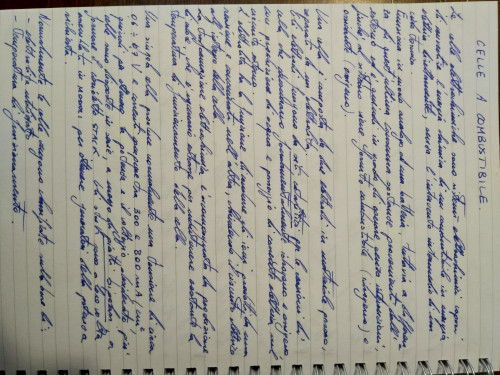 CELLE A COMBUSTIBILE.
Le celle elettrochimiche sono sistemi elettrochimici capaci
di convertire l'energia chimica di un combustibile in energia
elettrica direttamente, senza l'intervento intermedio di un
ciclo termico.
in quanto analogo ad una batteria, tuttavia a differenza
di quest'ultima consuma sostanze provenienti dall'
esterno ed è quindi in grado di operare senza interruzioni,
finché al sistema viene fornito combustibile (idrogeno) e
ossidante (ossigeno).
Una cella è composta da due elettrodi in materiale poroso,
separati da un elettrolita.
Gli elettrodi fungono da siti per le reazioni di
cella che consumano fondamentalmente idrogeno e ossigeno
con produzione di acqua e passaggio di corrente elettrica nel
circuito esterno.
L'elettrolita ha la funzione di condurre gli ioni prodotti da una
reazione e consumati nell'altra, chiudendo il circuito elettrico
all'interno della cella.
La trasformazione elettrochimica è accompagnata da produzione
di calore, che è necessario estrarre per mantenere costante la
temperatura di funzionamento della cella.
Una singola cella produce normalmente una tensione di circa
0,7 V e correnti comprese tra 300 e 800 mA/cm²,
quindi per ottenere la potenza e il voltaggio desiderato più
celle sono disposte in serie, a mezzo di piatti bipolari, a
formare il cosiddetto STACK. Gli stack sono a loro volta
assemblati in moduli per ottenere generatori della potenza
richiesta.
Normalmente le celle vengono classificate sulla base di:
- elettrolita utilizzato
- temperatura di funzionamento.